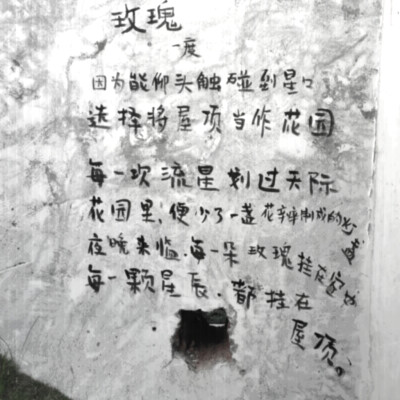 玫瑰
一度
因为能仰头触碰到星口
选择将屋顶当作花园
每一次流星划过天际
花园里,便少了一盏花瓣制成的光盏
夜晚来临,每一朵玫瑰挂在窗内
每一颗星辰,都挂在
屋顶。